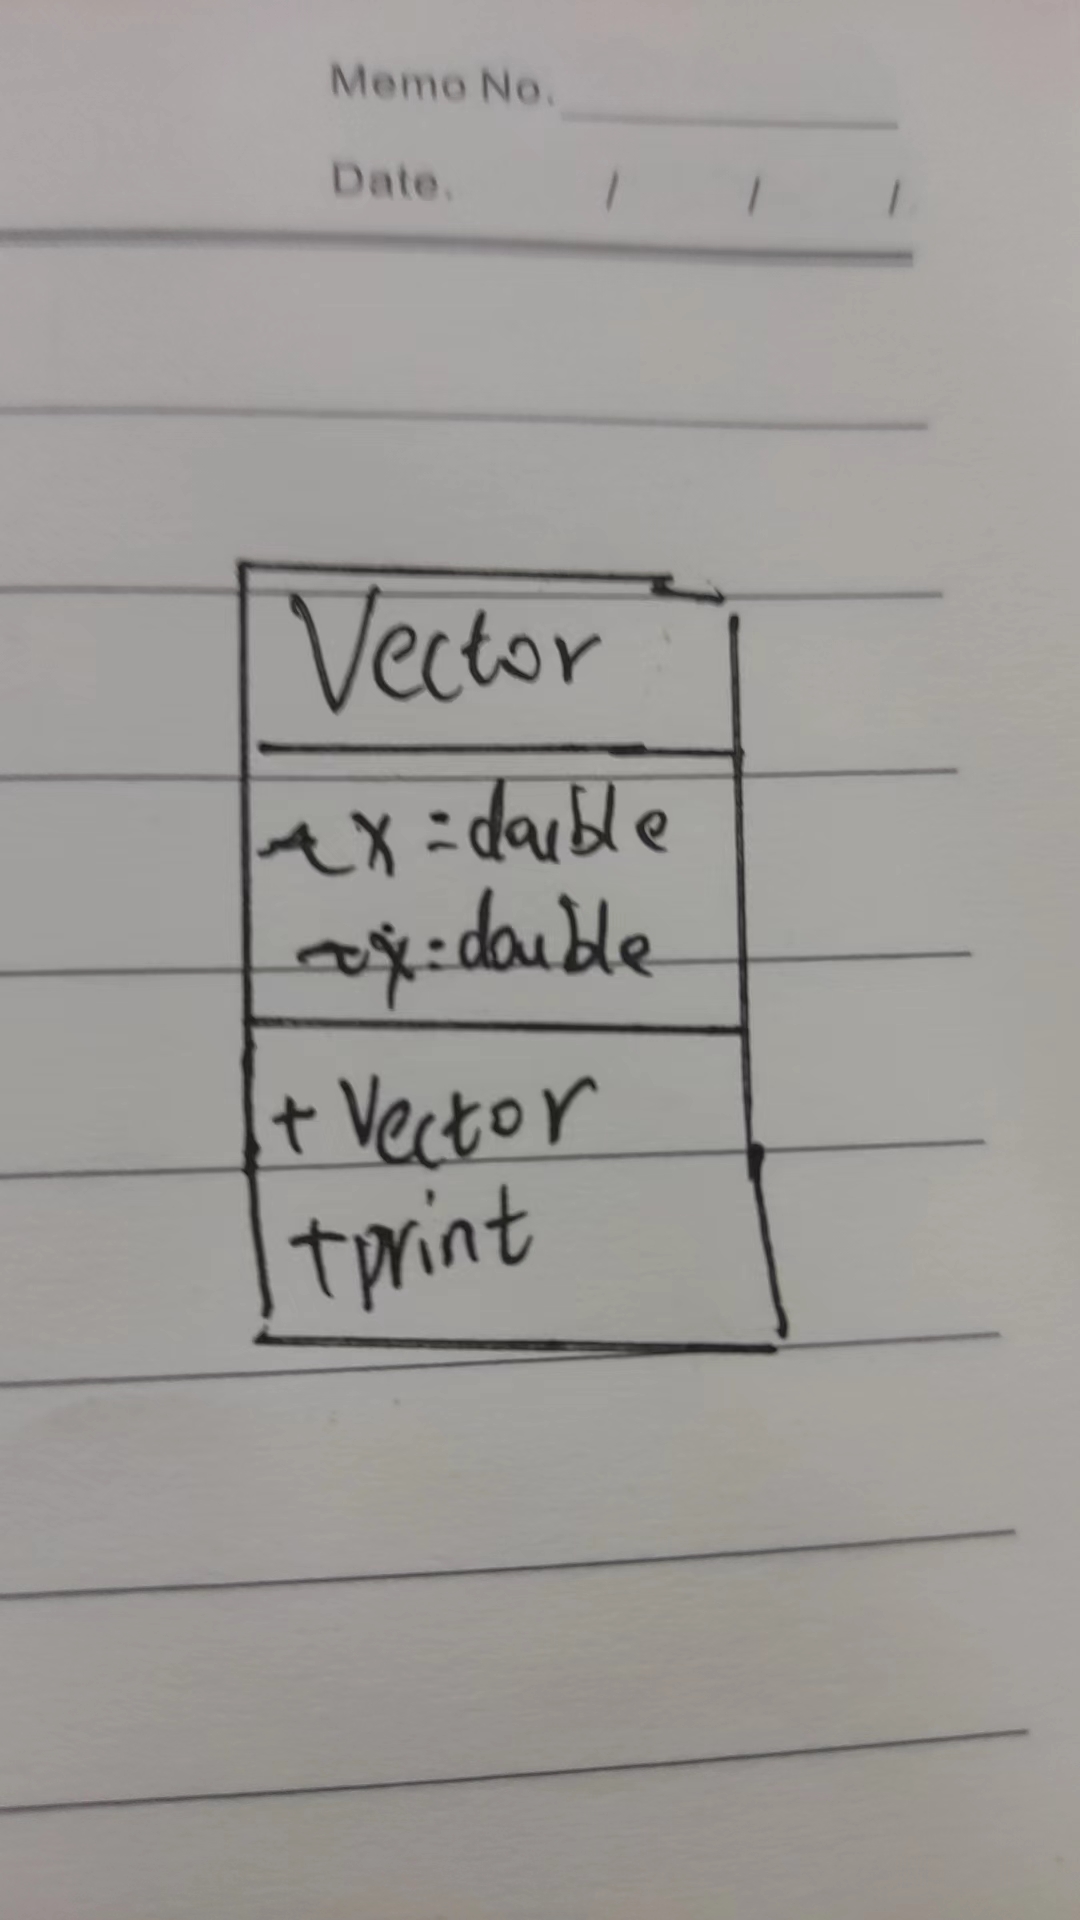 Memo No.
Date. / / /
Vector
x = double
: double
+ Vector
+ print